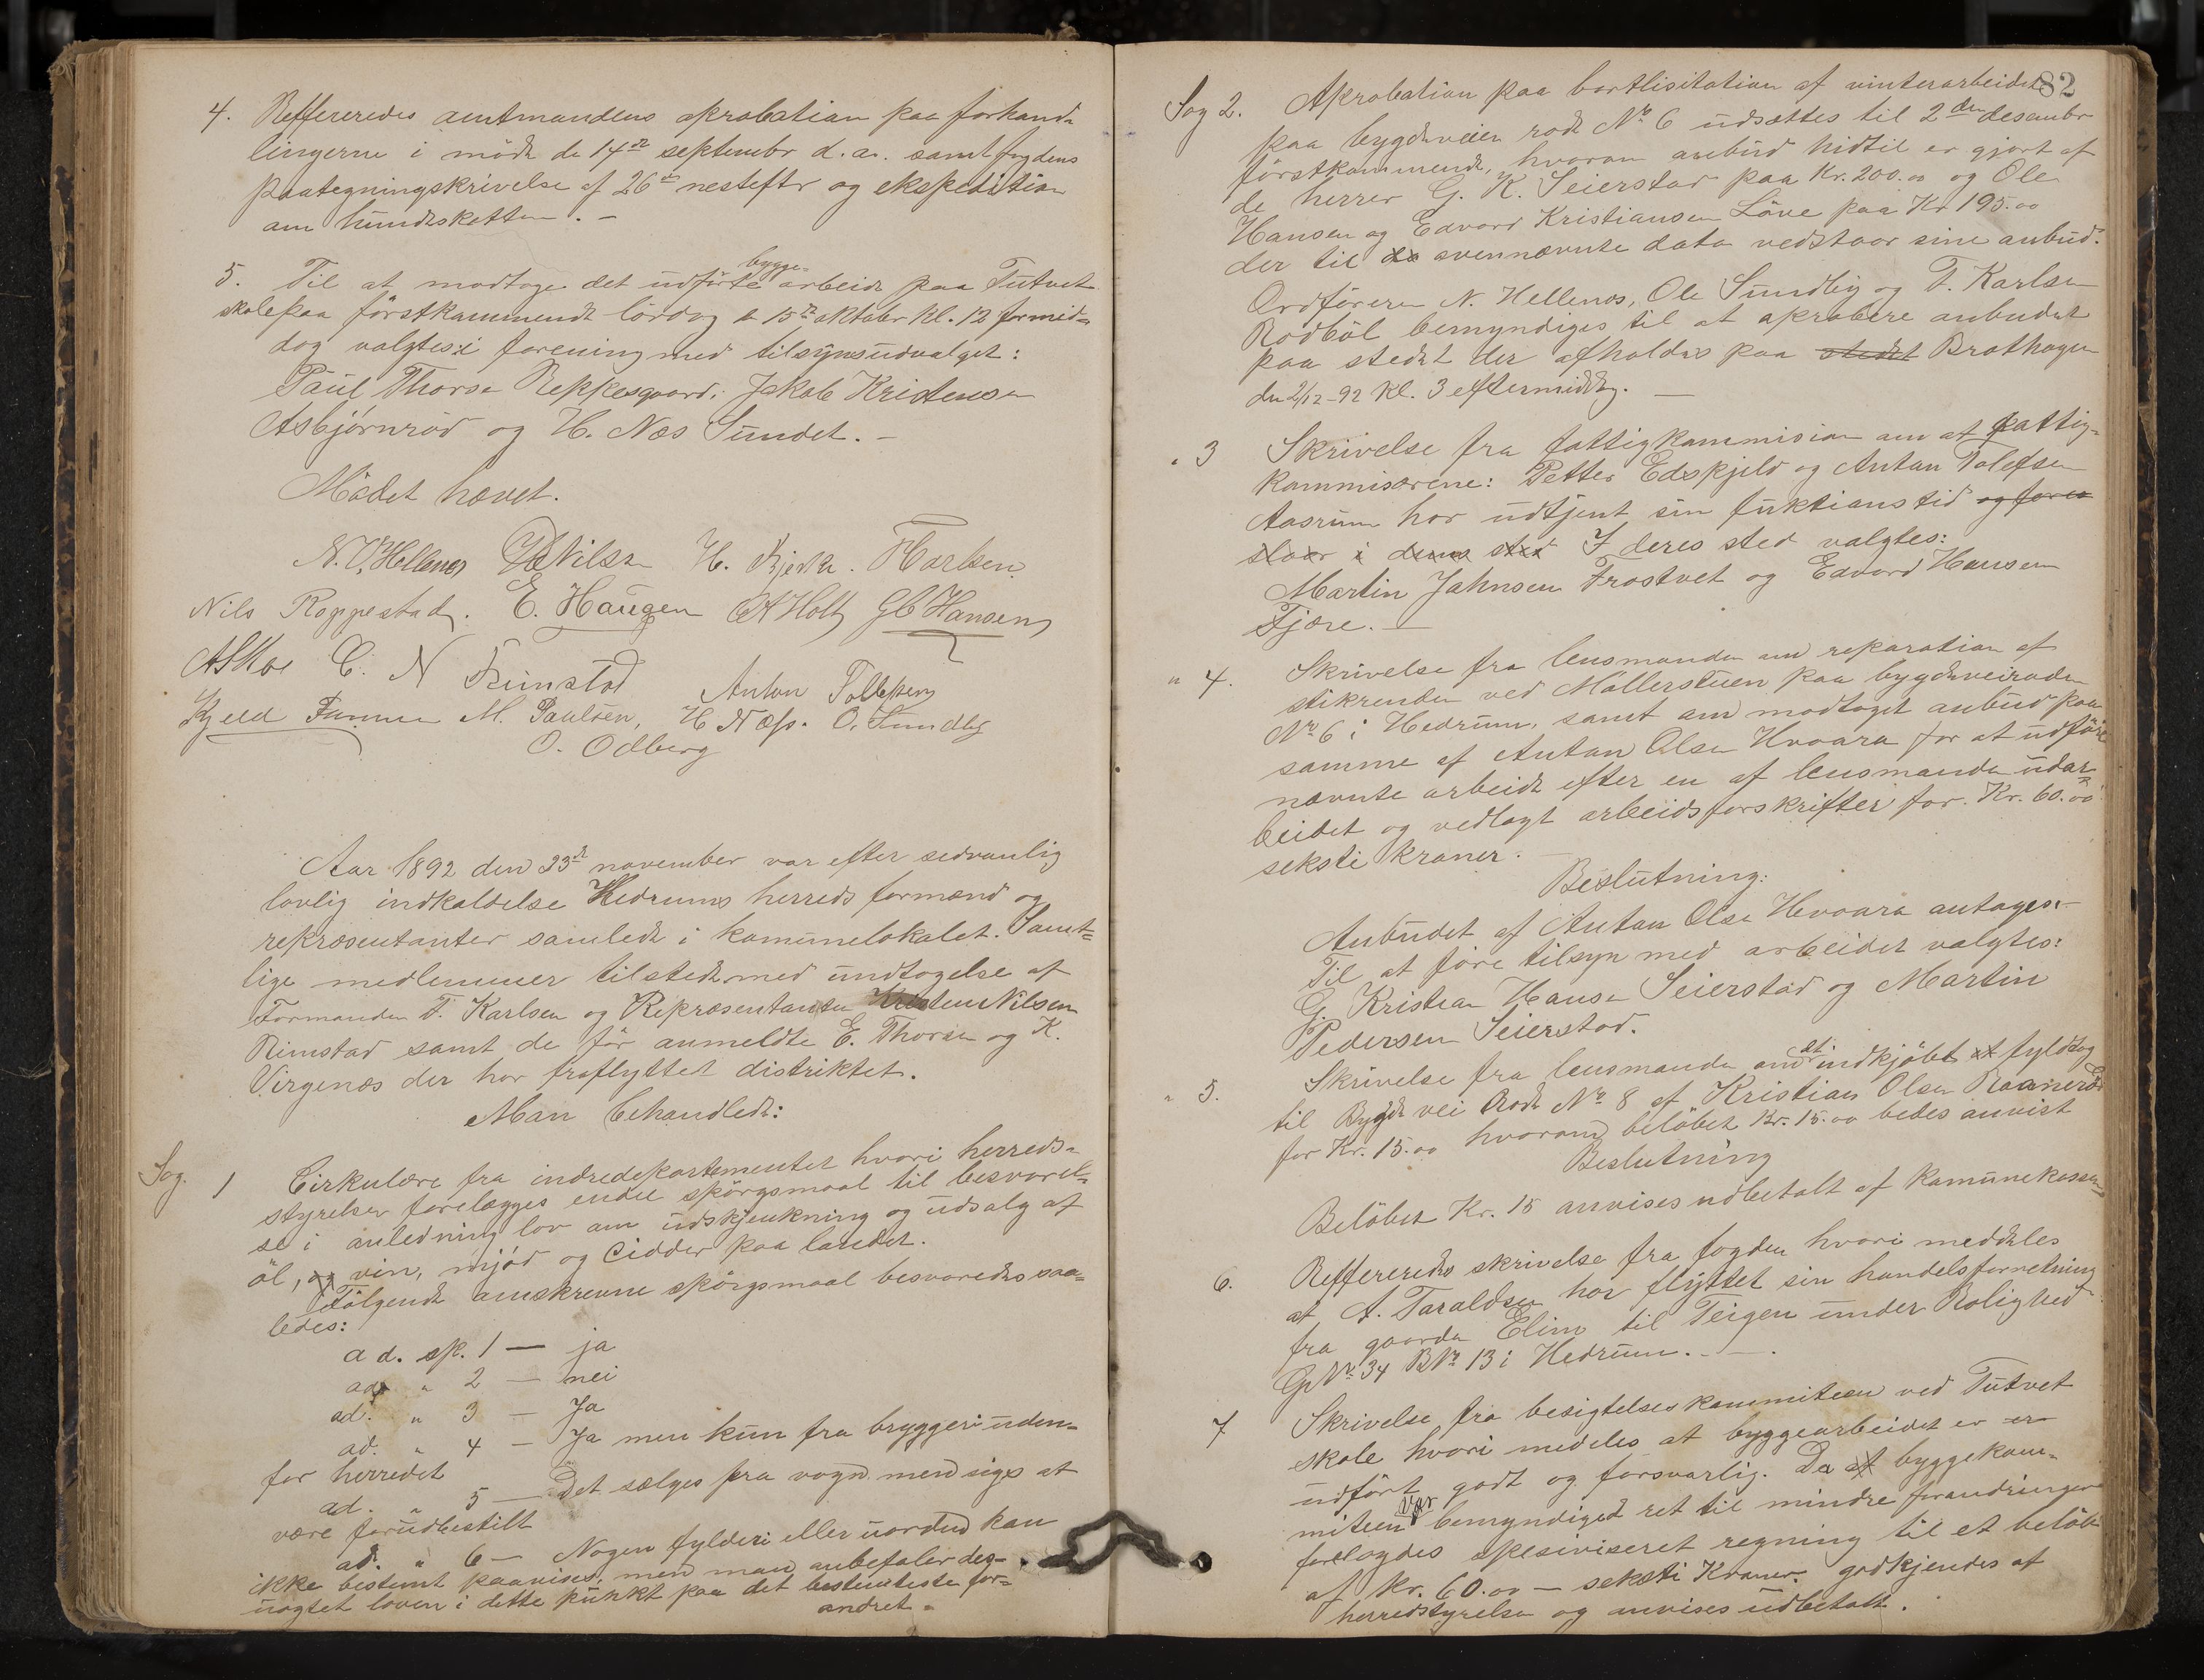 4. Reffereredes amtmandens aprobation paa forhand=
lingerne i möde de 14de septembr d. a. samt fogdens
paategningskrivelse af 26de nesteftr og ekspedition
om hundeskatten. -
5. Til at modtage det udförte bygge= arbeide paa Tutvet
skole paa förstkommende lördag d 15de oktobr kl. 12 formid=
dag valgtes: i forening med tilsynsudvalget:
Paul Thorse Reppesgaard, Jakob Kristensen
Asbjörnröd og H. Næs Sundet. -
Mödet hævet.
N. O. Hellenes H. Nilsen H. Gjerstu. F Karlsen
Nils Roppestad. E. Haugen A Holt G C Hansen
A Skoe C. N Rimstad Anton Tollefsen
Kjeld M. Paulsen, H Næss. O. Sundby
O. Odberg
Aar 1892 den 23de november var efter sedvanlig
lovlig indkaldelse Hedrums herreds formænd og
repræsentanter samlede i kommunelokalet. Samt=
lige medlemmer tilstede med undtagelse af
Formanden F. Karlsen og Repræsentanten Kristen Nilsen
Rimstad samt de för anmeldte E. Thorsen og K.
Virgenæs der har fraflyttet distriktet.
Man behandlede:
Sag. 1 Cirkulære fra indredepartementet hvori herreds=
styrelsen forelægges endel spörgsmaal til besvarel=
se i anledning lov om udskjenkning og udsalg af
öl, og vin, mjöd og Cidder paa landet.
Fölgende omskrevne spörgsmaal besvaredes saa=
ledes:
ad. sp. 1 — ja
ad. " 2 — nei
ad. " 3 — Ja
ad. " 4 — Ja men kun fra bryggeri uden=
for herredet
ad. " 5 — Det sælges fra vogn men siges at
være forudbestilt
ad. " 6 — Nogen fylderi eller uorden kan
ikke bestemt paavises, men man anbefaler des=
uagtet loven i dette punkt paa det bestemteste for=
andret.
82
Sag 2. Aprobation paa bortlisitation af vinterarbeidet
paa bygdeveien rode No 6 udsættes til 2den desembr
förstkommende, hvorom anbud hidtil er gjort af
de herrer G. K. Seierstad paa Kr. 200.00 og Ole
Hansen og Edvard Kristiansen Löve paa Kr 195.00
der til de ovennævnte data vedstaar sine anbud.
Ordföreren N. Hellenes, Ole Sundby og F. Karlsen
Rodböl bemyndiges til at aprobere anbudet
paa stedet der afholdes paa stedet Brathagen
den 2/12-92 Kl. 3 eftermiddag. —
" 3 Skrivelse fra fattigkommision om at fattig=
kommisærene: Petter Edskjeld og Anton Tolefsen
Aasrum har udtjent sin fuktionstid og fores
slaar i deres sted I deres sted valgtes:
Martin Jahnsen Frostvet og Edvard Hansen
Fjære. —
" 4. Skrivelse fra lensmanden om reparation af
stikrenden ved Möllerstuen paa bygdeveiroden
No 6 i Hedrum, samt om modtaget anbud paa
samme af Anton Olsen Hvaara for at udföre
nævnte arbeide efter en af lensmanden udar=
beidet og vedlagt arbeidsforskrifter for Kr. 60.00
seksti kroner. —
Beslutning:
Anbudet af Anton Olsen Hvaara antages.
Til at före tilsyn med arbeidet valgtes:
G. Kristian Hansen Seierstad og Martin
Pedersen Seierstad.
" 5. Skrivelse fra lensmanden om et indkjöbt et fyldtag
til Bygdevei Rode No 8 af Kristian Olsen Raaneröd
for Kr. 15.00 hvorom belöbet Kr. 15.00 bedes anvist
Beslutning
Belöbet Kr. 15 anvises udbetalt af kommunekassen
6. Reffereredes skrivelse fra fogden hvori meddeles
at A. Taraldsen har flyttet sin handelsforretning
fra gaarden Elim til Teigen under Rolighed
G No 34 B No 13 i Hedrum. —
7 Skrivelse fra besigtelseskommiteen ved Tutvet
skole hvori medeles at byggearbeidet er er
udfört godt og forsvarlig. Da at byggekom=
miteen var bemyndiget ret til mindre forandringer
forelagdes spesiviseret regning til et belöb
af Kr. 60.00 — seksti Kroner godkjendes af
herredstyrelsen og anvises udbetalt.